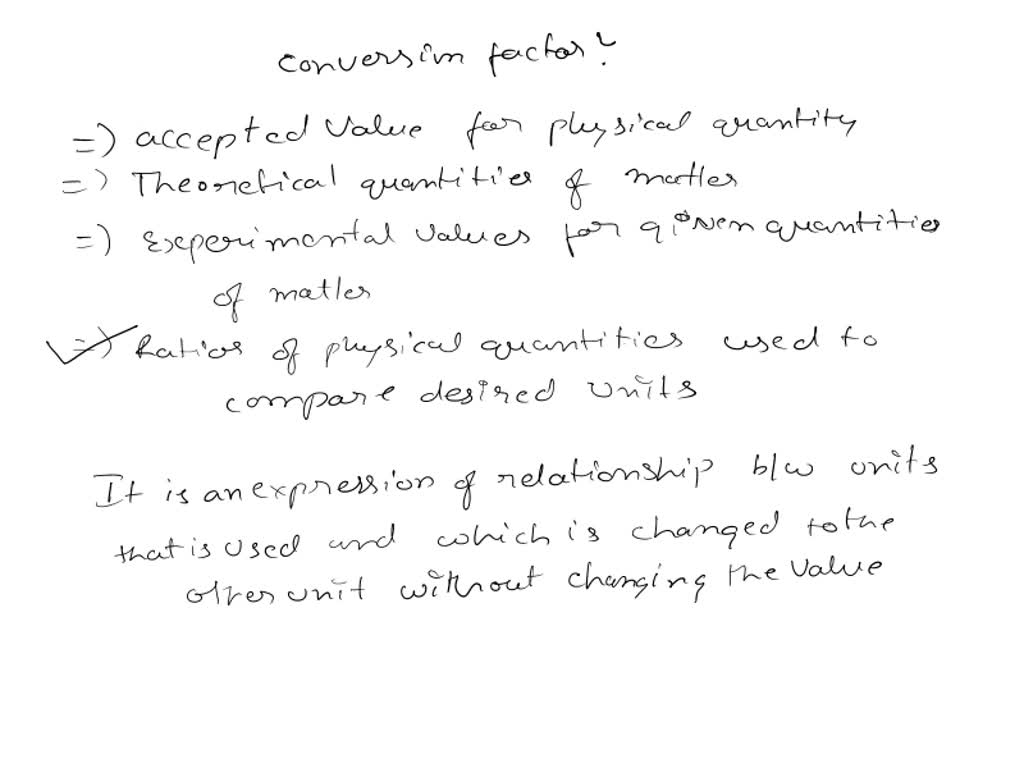 conversion factor?
=) accepted value for physical quantity
=) Theoretical quantities of matter
=) Experimental values for given quantities
of matter
=) Ratios of physical quantities used to
compare desired units
It is an expression of relationship b/w units
that is used and which is changed to the
other unit without changing the value